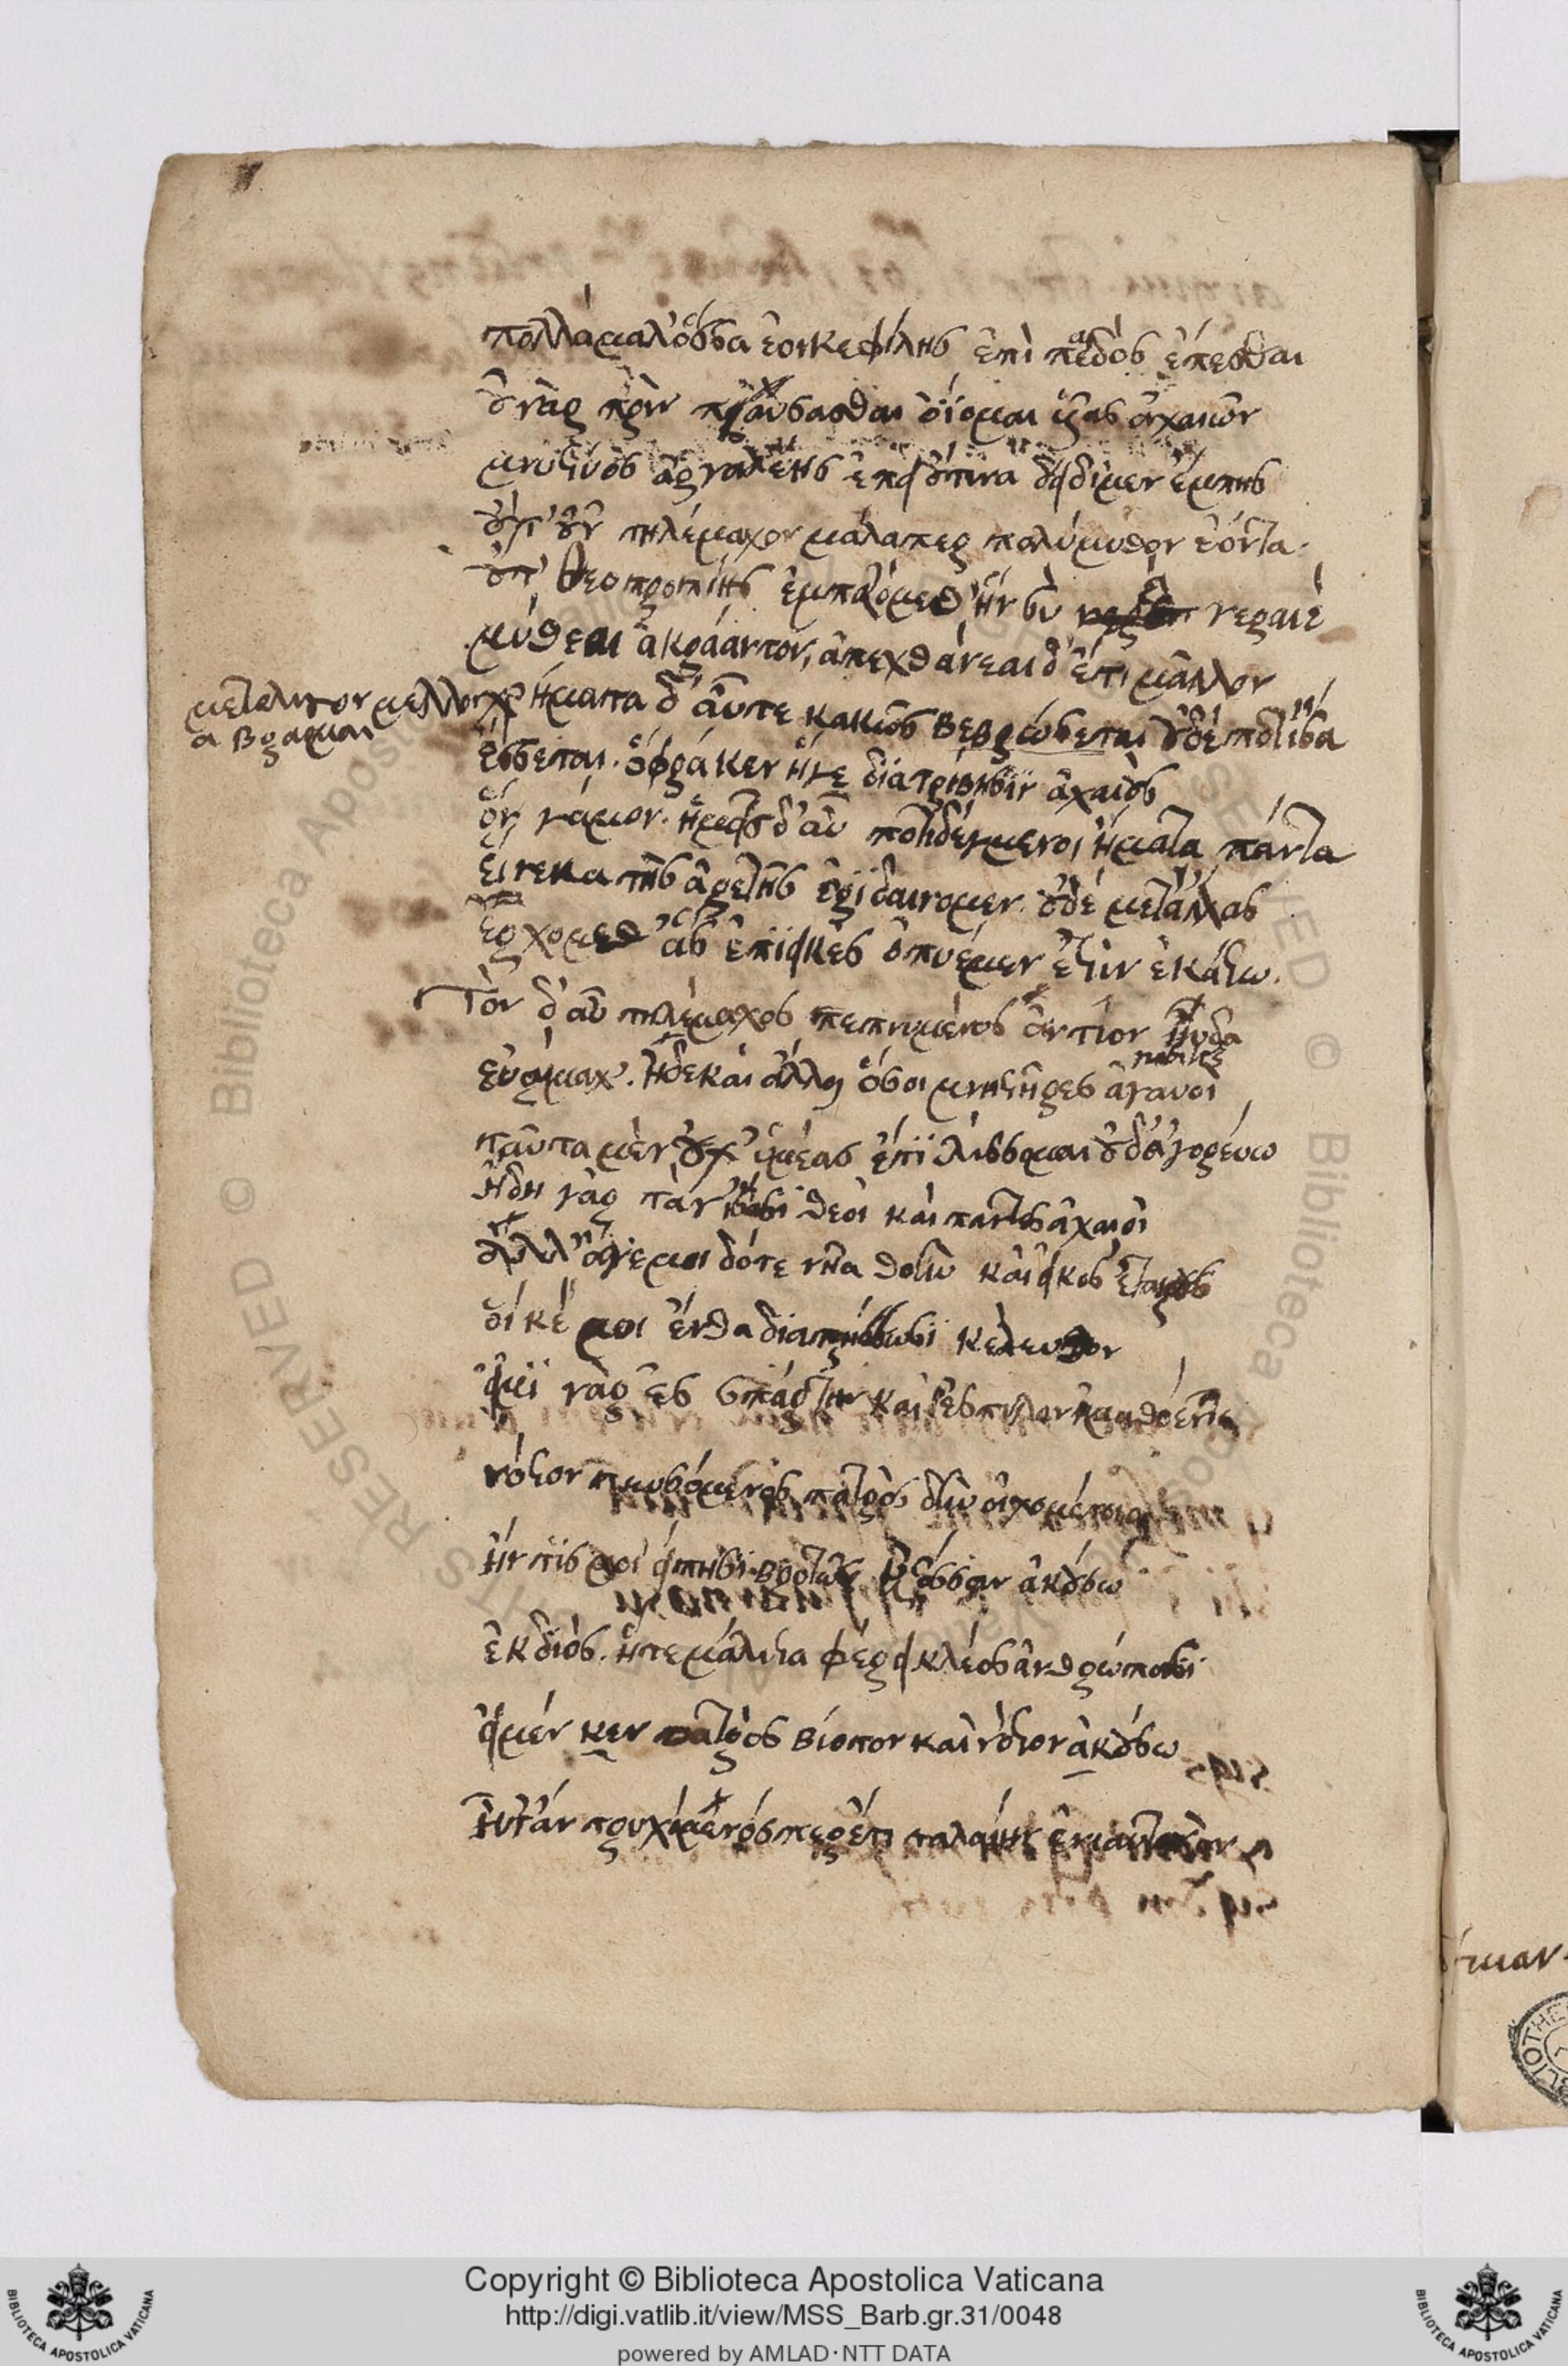 πολλὰ μαλ' ὅσσα ἔοικε φίλης ἐπὶ παιδὸς ἕπεσθαι
οὐ γὰρ πρὶν παύσασθαι ὀΐομαι υἷας ἀχαιῶν
μνηστύος ἀργαλέης ἐπεὶ οὔτινα δείδιμεν ἔμπης
οὔτ' οὖν τηλέμαχον μάλα περ πολύμυθον ἐόντα·
οὔτε θεοπροπίης ἐμπαζόμεθ' ἣν σὺ γεραιὲ
μύθεαι ἀκράαντον, ἀπεχθάνεαι δ' ἔτι μᾶλλον
χρήματα δ' αὖτε κακῶς βεβρώσεται οὐδέ ποτ' ἶσα
ἔσσεται. ὄφρά κεν ἥγε διατρίβησιν ἀχαιοὺς
ὃν γάμον. ἡμεῖς δ' αὖ ποτιδέγμενοι ἤματα πάντα
εἵνεκα τῆς ἀρετῆς ἐριδαίνομεν. οὐδὲ μετ' ἄλλας
ἐρχόμεθ' ἃς ἐπιεικὲς ὀπυιέμεν ἐστὶν ἑκάστω.
Τὸν δ' αὖ τηλέμαχος πεπνυμένος ἀντίον ηὔδα
εὐρύμαχ'. ἠδὲ καὶ ἄλλοι ὅσοι μνηστῆρες ἀγαυοὶ
ταῦτα μὲν οὐχ ὑμέας ἔτι λίσσομαι οὐδ' ἀγορεύω
ἤδη γὰρ τὰ ἴσασι θεοὶ καὶ πάντες ἀχαιοὶ
ἀλλ' ἄγε μοι δότε νῆα θοὴν καὶ εἴκοσ' ἑταίρους
οἵ κέ μοι ἔνθα διαπρήσσωσι κέλευθον
εἶμι γὰρ ἐς σπάρτην καὶ ἐς πύλον ἠμαθόεντα
νόστον πευσόμενος πατρὸς δὴν οἰχομένοιο
ἤν τίς μοι εἴπησι βροτῶν ἢ ὄσσαν ἀκούσω
ἐκ διός. ἥτε μάλιστα φέρει κλέος ἀνθρώποισι
εἰ μέν κεν πατρὸς βίοτον καὶ νόστον ἀκούσω
ἦτ' ἂν τρυχόμενός περ ἔτι τλαίην ἐνιαυτὸν